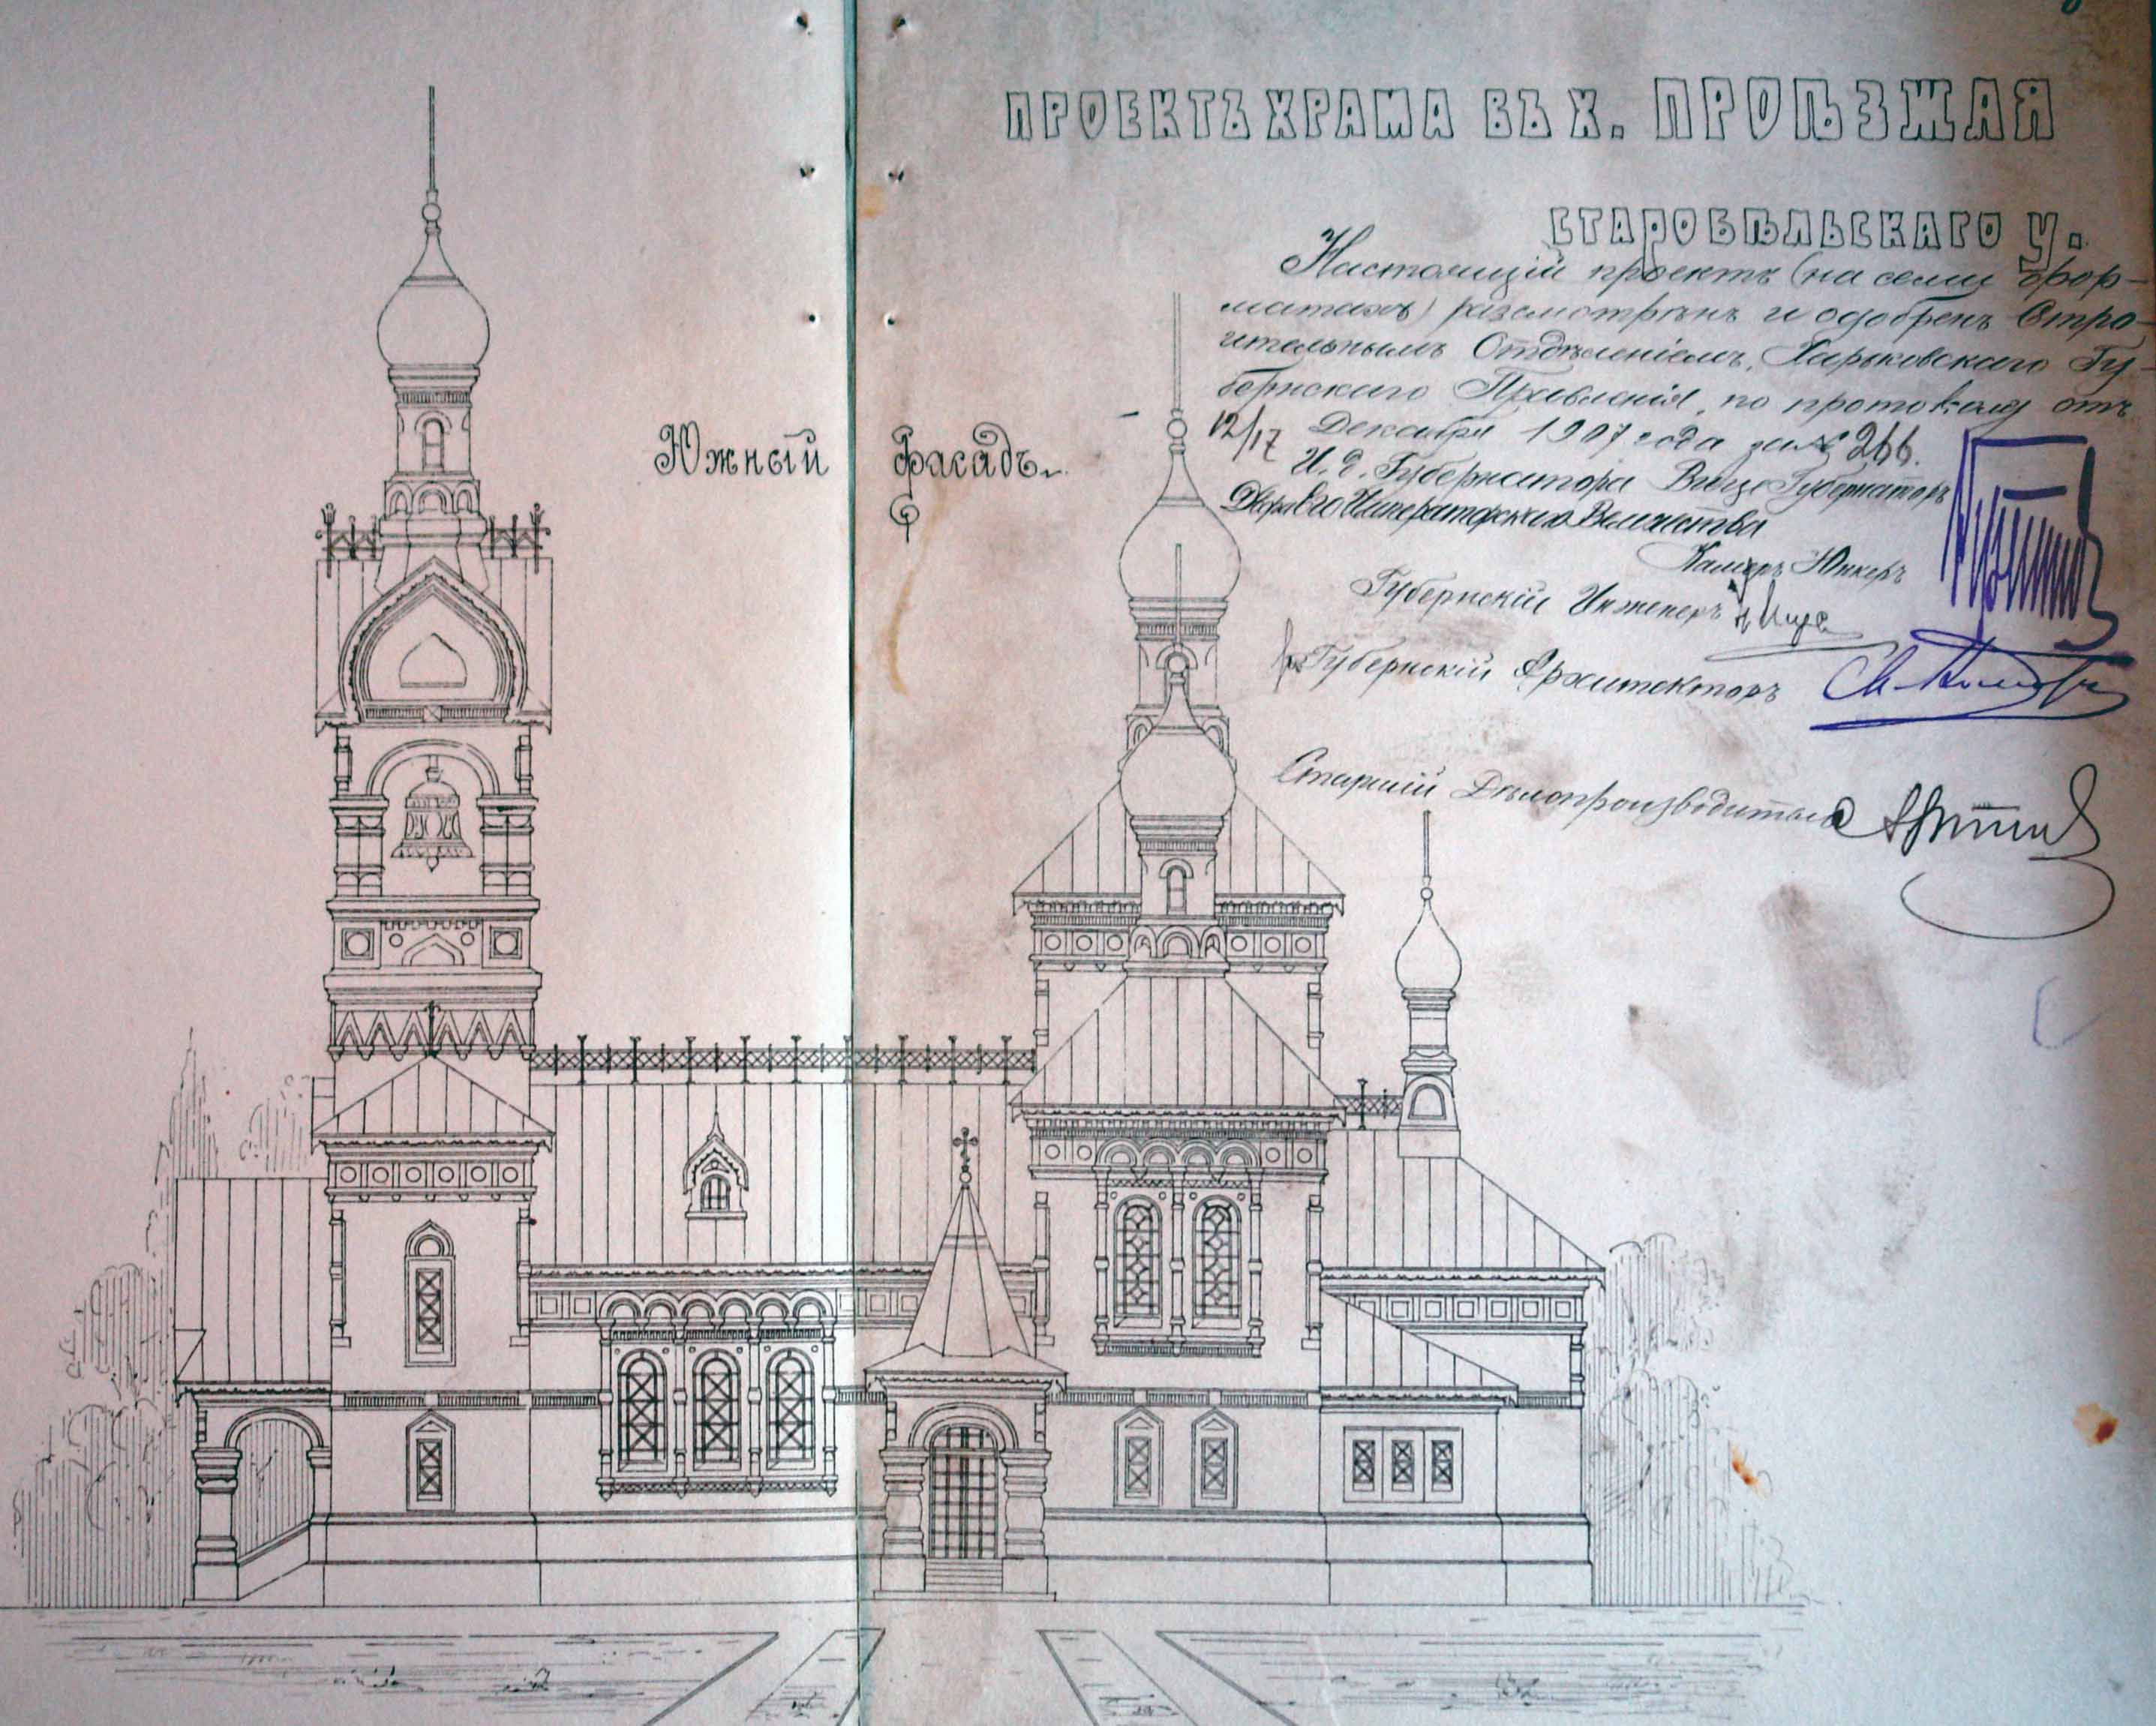 ПРОЕКТЪ ХРАМА ВЪ Х. ПРОѢЗЖАЯ
СТАРОБѢЛЬСКАГО У.
Настоящій проектъ (на семи фор-
матахъ) разсмотрѣнъ и одобренъ Стро-
ительнымъ Отдѣленіемъ, Харьковскаго Гу-
бернскаго Правленія, по протоколу отъ
12/17 Декабря 1907 года за № 266.
И. д. Губернатора Вице-Губернаторъ
Двора Его Императорскаго Величества
Камеръ Юнкеръ
Губернскій Инженеръ
Губернскій Архитекторъ
Старшій Дѣлопроизводитель
Южный фасадъ.